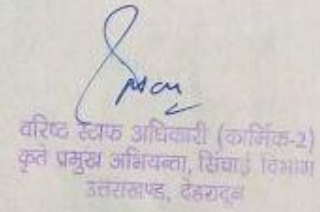 वरिष्ट स्टाफ अधिकारी (कार्मिक-2)
कृते प्रमुख अभियन्ता, सिंचाई विभाग
उत्तराखण्ड, देहरादून